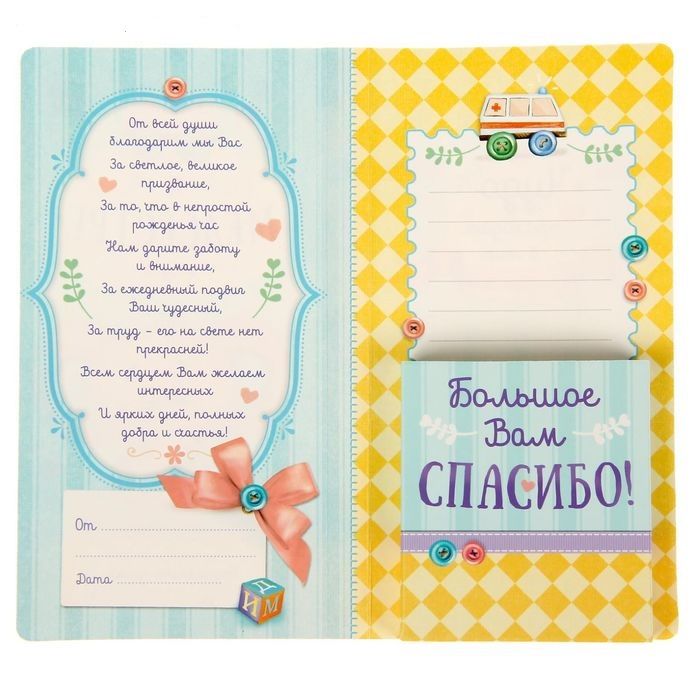 От всей души
благодарим мы Вас
За светлое, великое
призвание,
За то, что в непростой
рожденья час
Нам дарите заботу
и внимание,
За ежедневный подвиг
Ваш чудесный,
За труд – его на свете нет
прекрасней!
Всем сердцем Вам желаем
интересных
И ярких дней, полных
добра и счастья!
От
Дата
Д
И М
Большое
Вам
СПАСИБО!